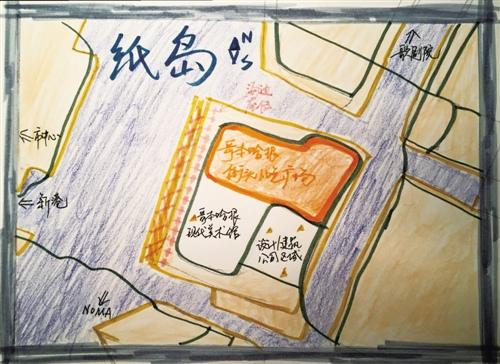 纸岛
N
S
歌剧院
海边
市中心
新港
哥本哈根
街头小吃市场
哥本哈根
现代美术馆
设计/建筑
公司区域
NOMA